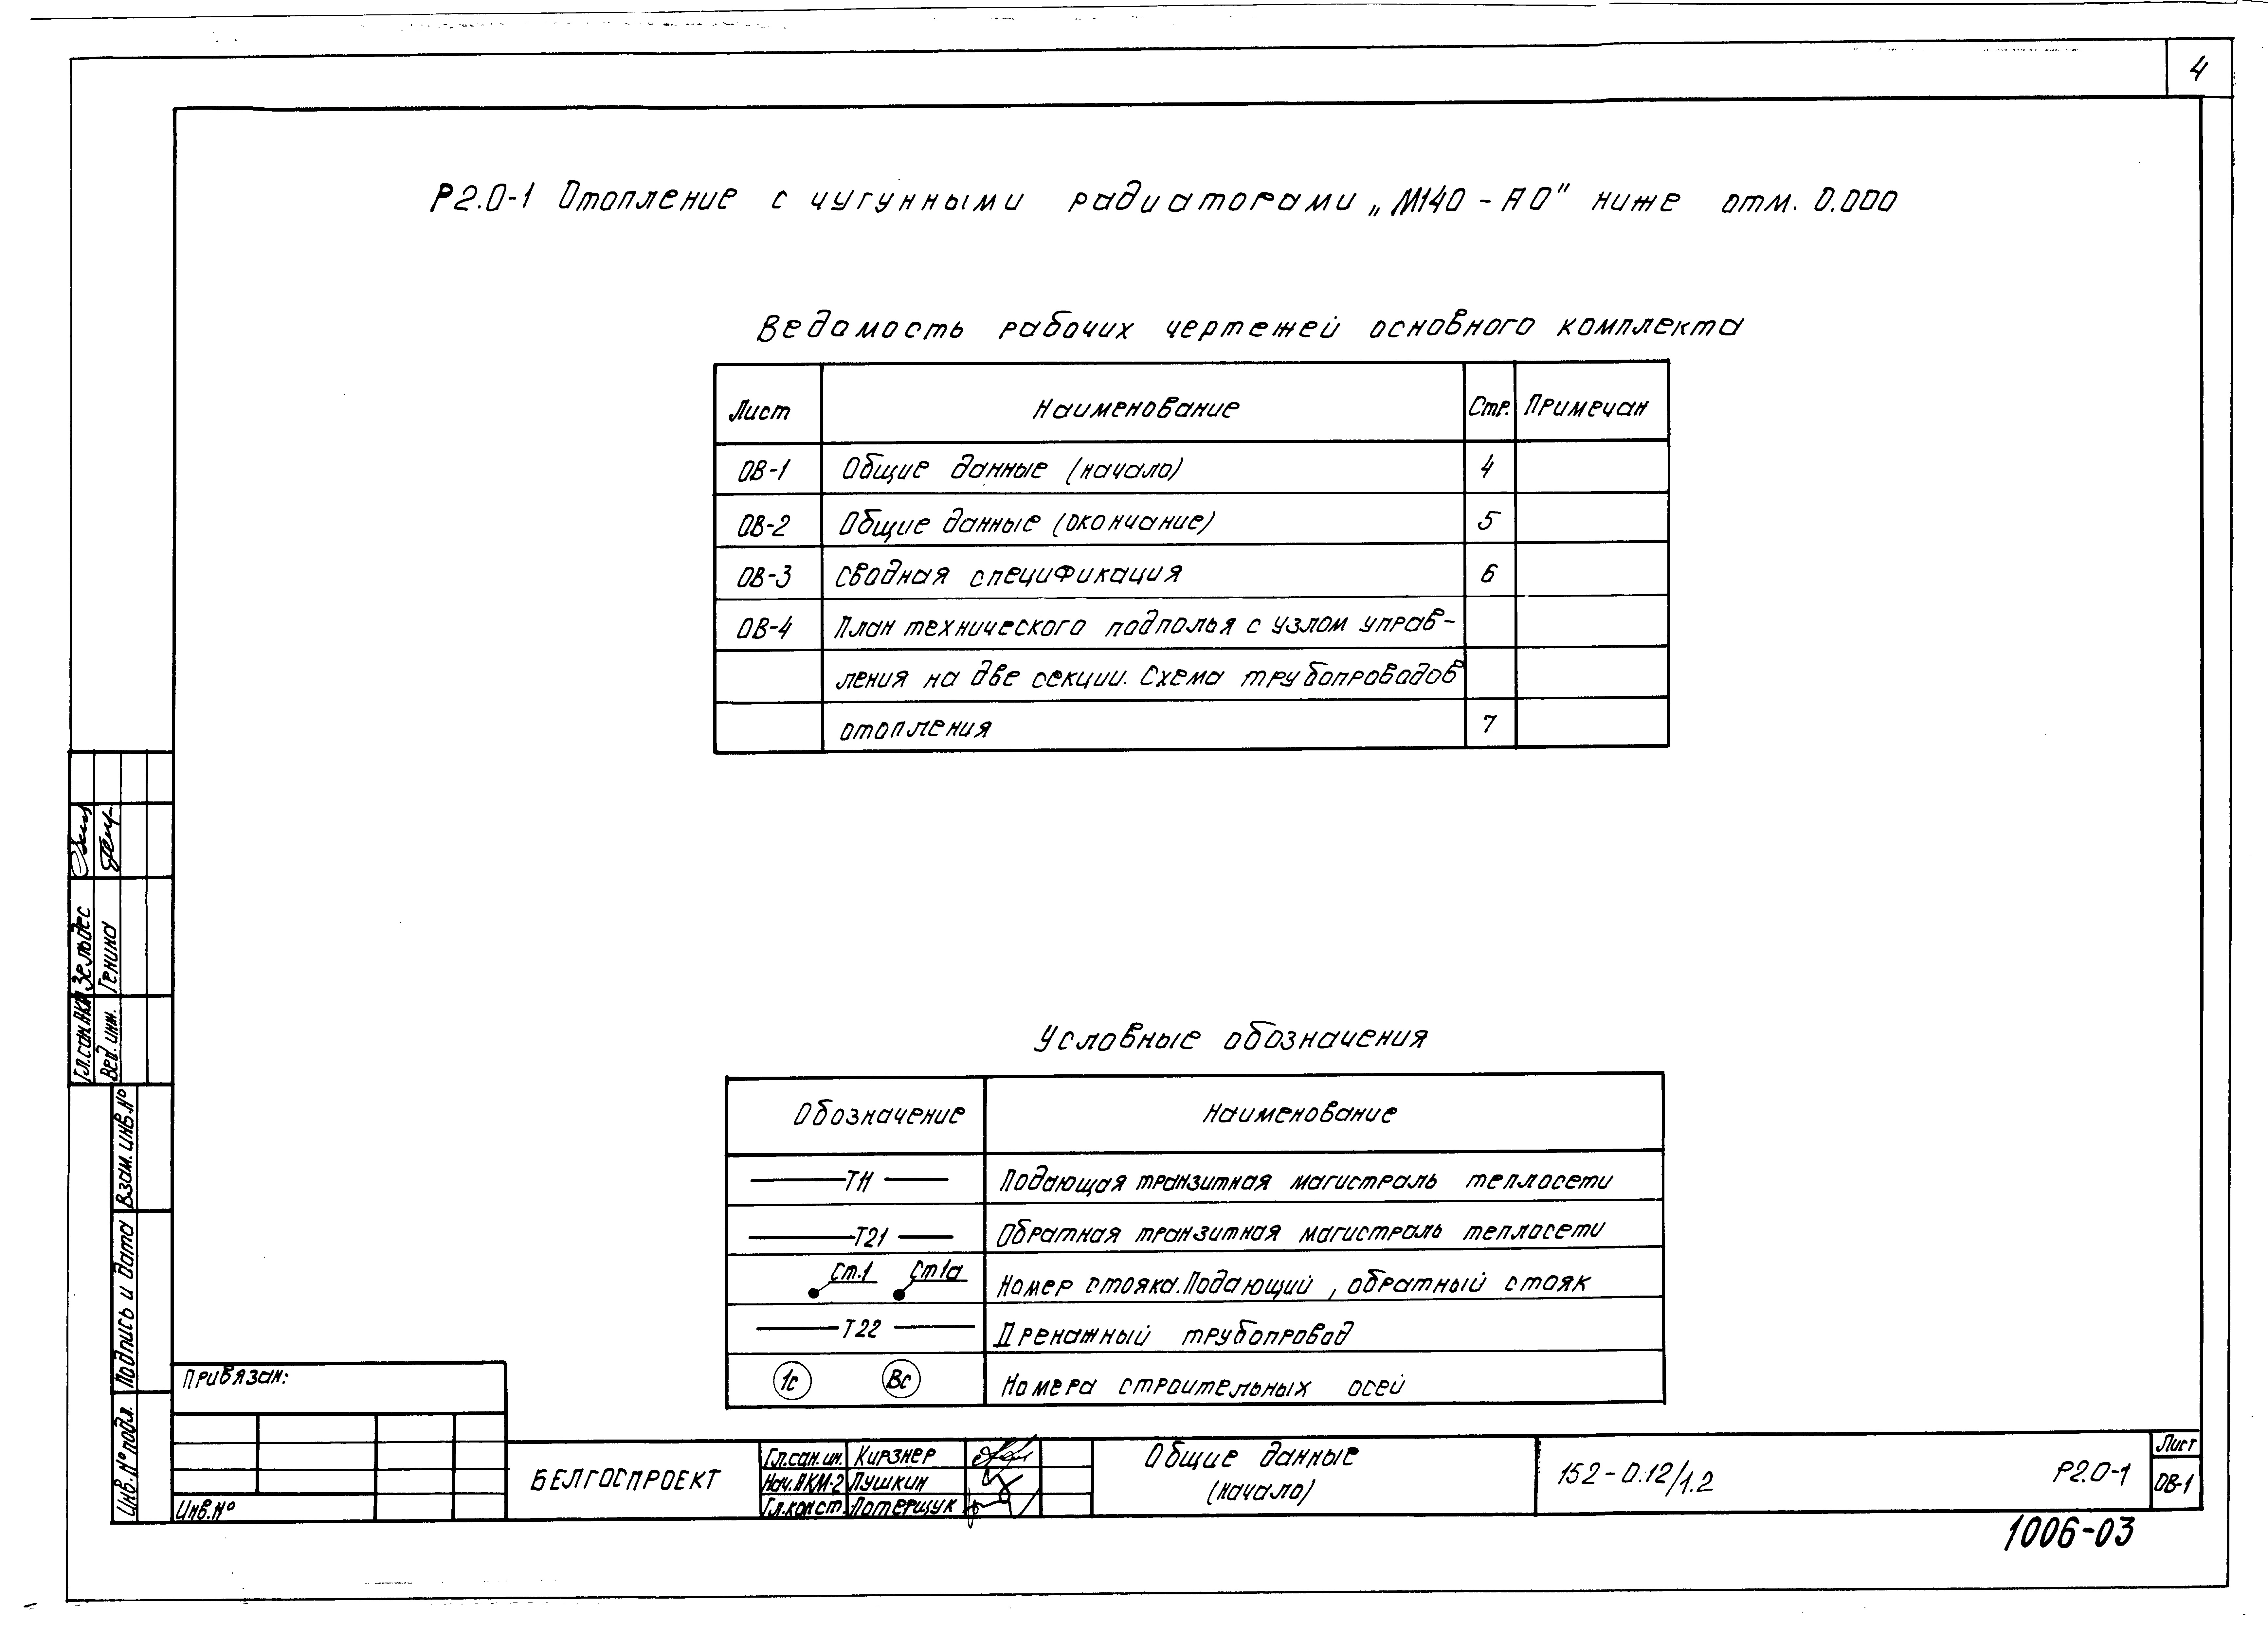 4
Р2.0-1 Отопление с чугунными радиаторами „М140-АО" ниже отм. 0.000
Ведомость рабочих чертежей основного комплекта
Лист Наименование Стр. Примечан
ОВ-1 Общие данные (начало) 4
ОВ-2 Общие данные (окончание) 5
ОВ-3 Сводная спецификация 6
ОВ-4 План технического подполья с узлом управ-
ления на две секции. Схема трубопроводов
отопления 7
Условные обозначения
Обозначение Наименование
Т11 Подающая транзитная магистраль теплосети
Т21 Обратная транзитная магистраль теплосети
Ст.1 Ст1а Номер стояка. Подающий, обратный стояк
Т22 Дренажный трубопровод
1с Вс Номера строительных осей
Гл.сан.АКМ Зельдес
Вед. инж. Генина
Взам. инв. №
Подпись и дата
Инв. № подл.
Привязан:
Инв. №
БЕЛГОСПРОЕКТ
Гл.сан.ин. Кирзнер
Нач.АКМ-2 Пушкин
Гл.конст. Потерщук
Общие данные
(начало)
152-0.12/1.2
Р2.0-1
Лист
ОВ-1
1006-03